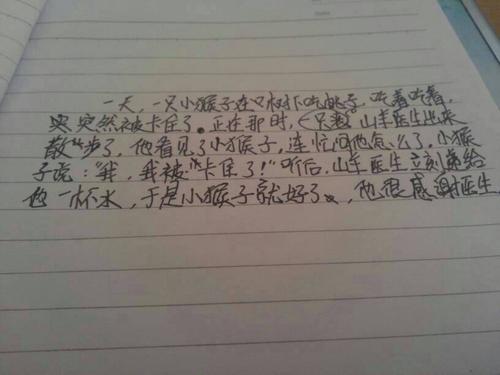 一天,一只小猴子在树下吃桃子,吃着吃着,
突然被卡住了。正在那时,山羊医生出来
散步了,他看见了小猴子,连忙问他怎么了,小猴
子说:我,我被“卡住了!”听后,山羊医生立刻递给
他一杯水,于是小猴子就好了,他很感谢医生